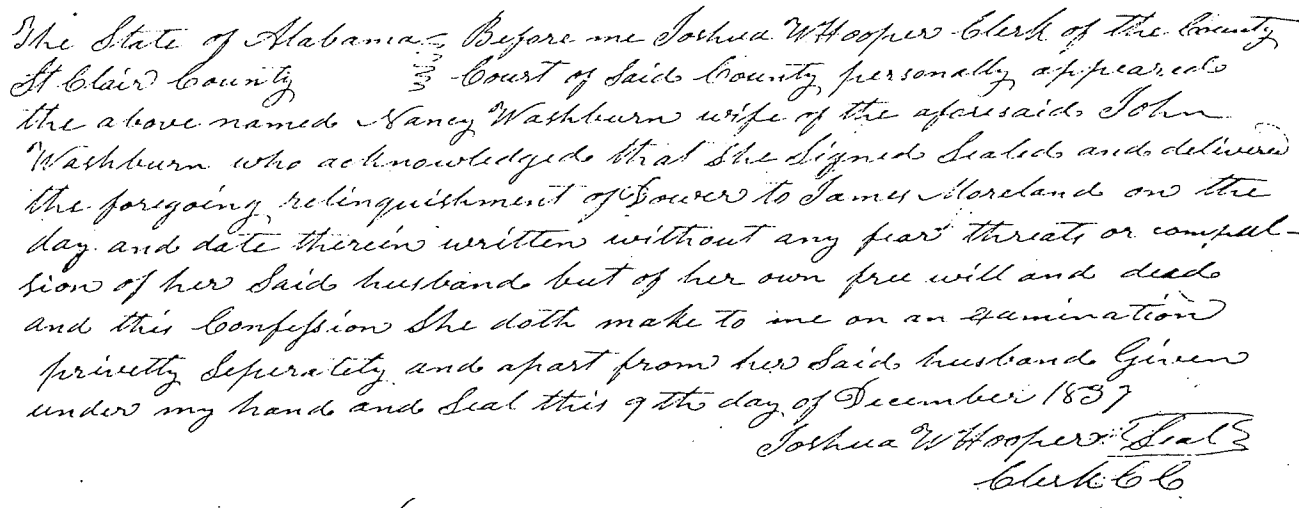 The State of Alabama Before me Joshua W Hooper Clerk of the County
St Clair County Court of Said County personally appeared
the above named Nancy Washburn wife of the aforesaid John
Washburn who acknowledged that She Signed Sealed and delivered
the foregoing relinquishment of Dower to James Moreland on the
day and date therein written without any fear threats or compul-
sion of her Said husband but of her own free will and dead
and this Confession She doth make to me on an examination
privetty Seperatety and apart from her Said husband Given
under my hand and Seal this 9th day of December 1837
Joshua W Hooper Seal
Clerk C C